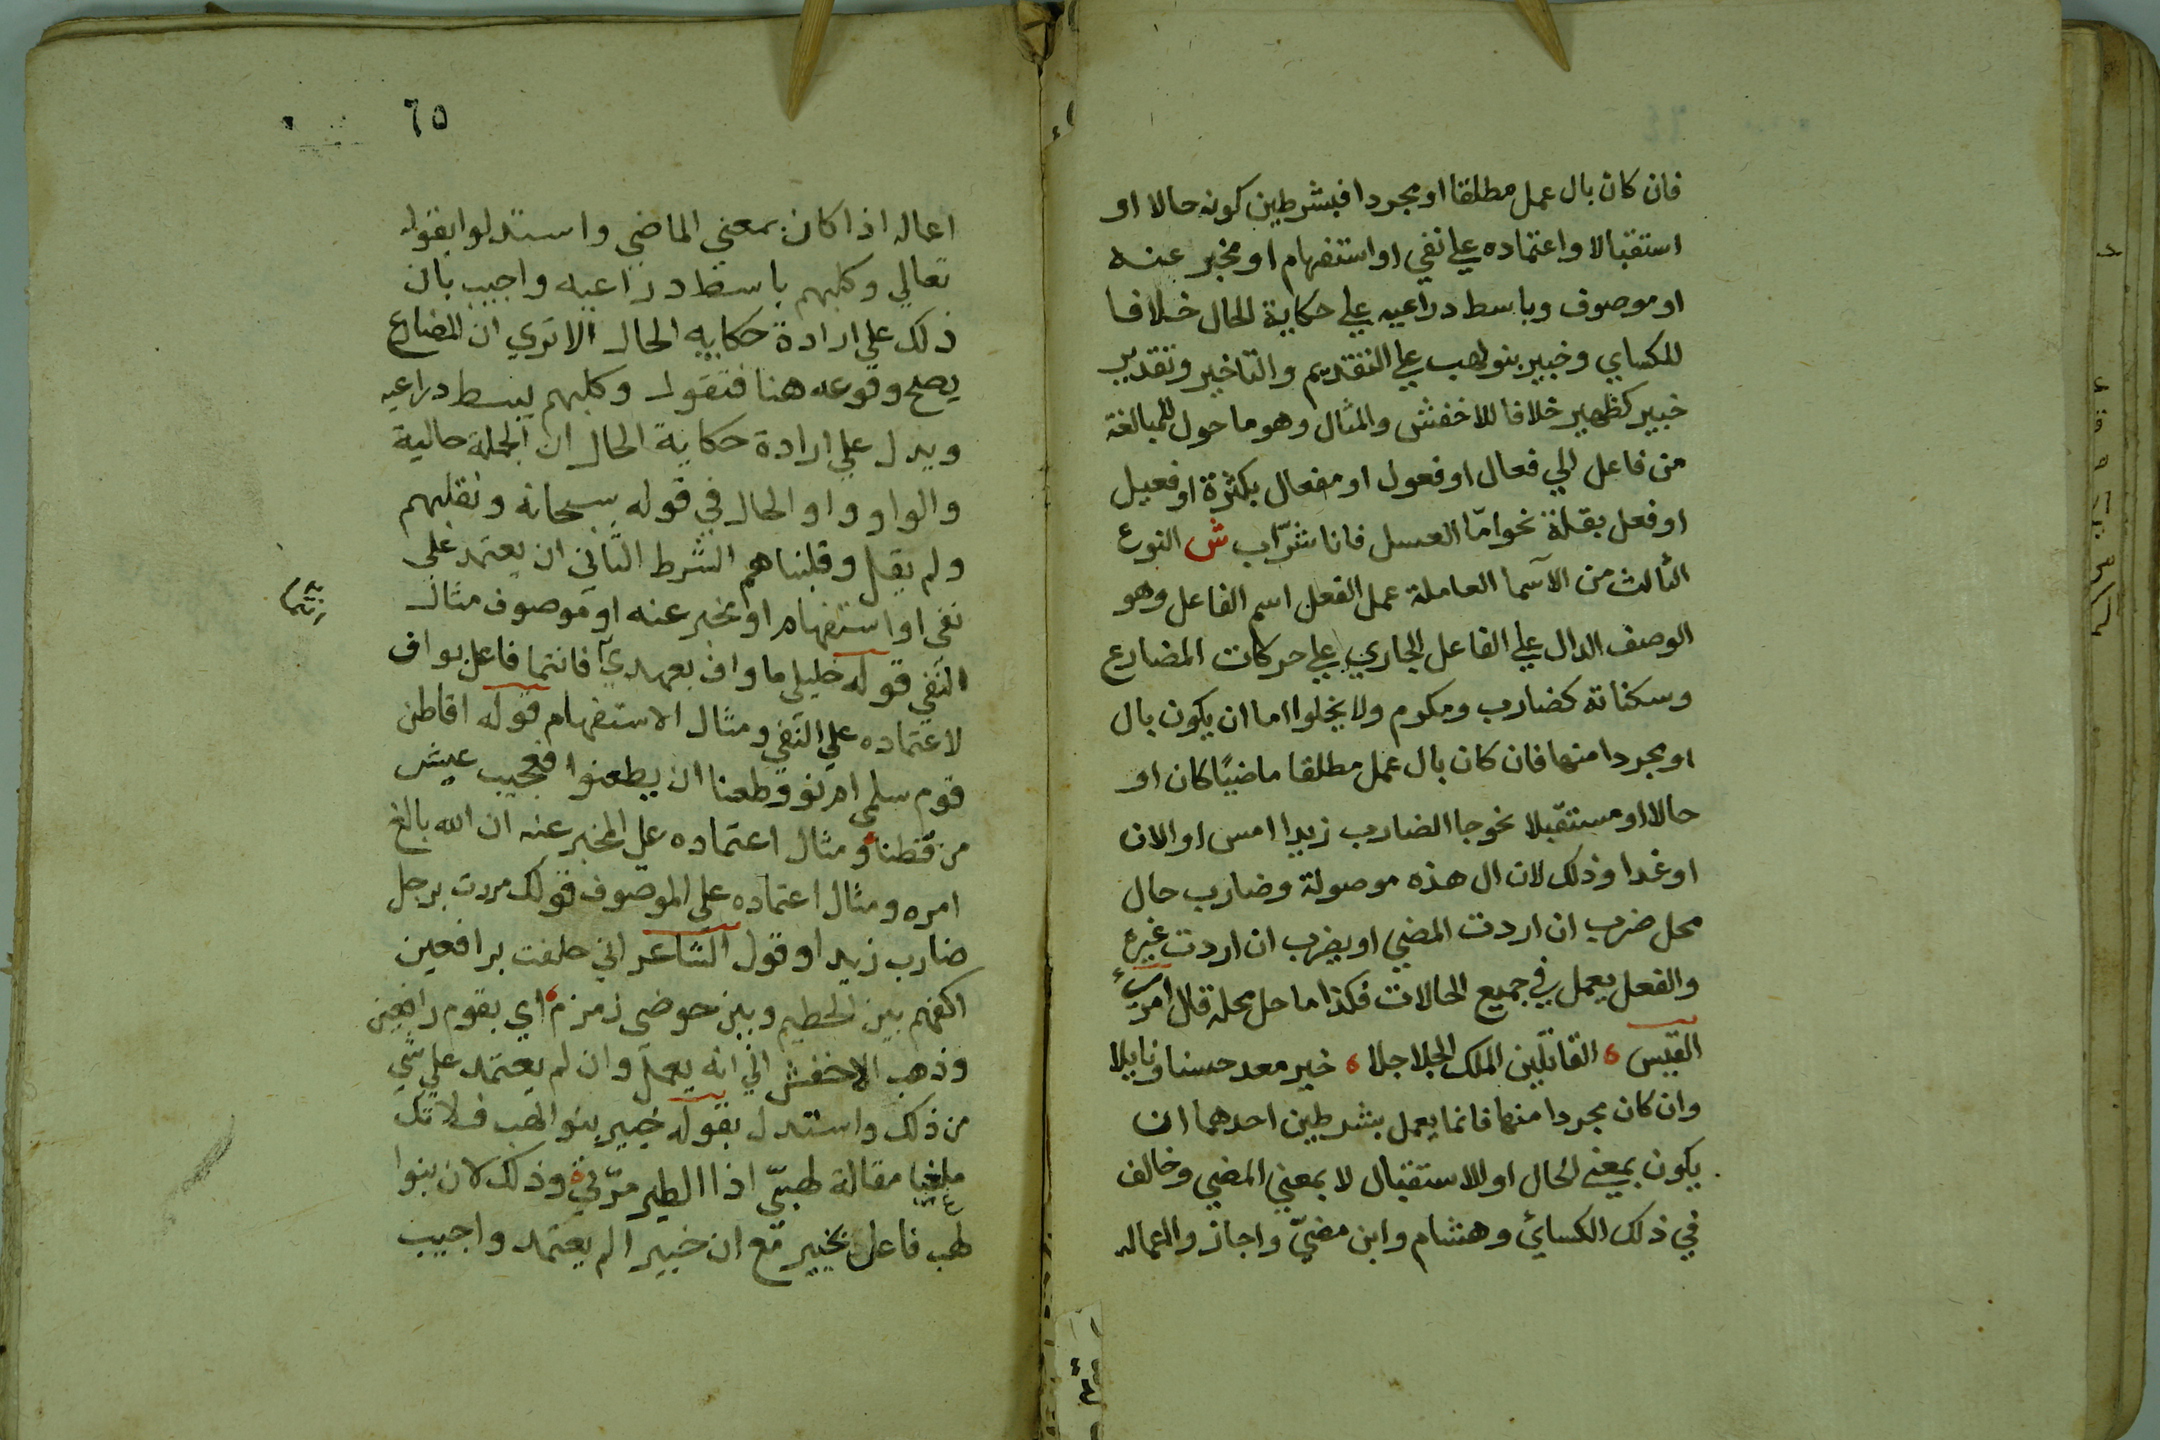 فان كان بال عمل مطلقا او مجردا فبشرطين كونه حالا او
استقبالا واعتماده علي نفي او استفهام او مخبر عنه
او موصوف وباسط دراعيه علي حكاية الحال خلافا
للكساي وخبير بنو لهب علي التقديم والتاخير وتقدير
خبير كظهير خلافا للاخفش والمثال وهو ما حول للمبالغة
من فاعل الي فعال او فعول او مفعال بكثرة او فعيل
او فعل بقلة نحو امّا العسل فانا شرّاب ش النوع
الثالث من الاسما العاملة عمل الفعل اسم الفاعل وهو
الوصف الدال علي الفاعل الجاري علي حركات المضارع
وسكناته كضارب ومكرم ولا يخلوا اما ان يكون بال
او مجردا منها فان كان بال عمل مطلقا ماضيًا كان او
حالا او مستقبلا نحو جا الضارب زيدا امس او الان
او غدا وذلك لان ال هذه موصولة وضارب حال
محل ضرب ان اردت المضي او يضرب ان اردت غيره
والفعل يعمل في جميع الحالات فكذا ما حل محله قال امرئ
القيس ، القاتلين الملك الحلاجلا ، خير معد حسنا ونايلا
وان كان مجردا منها فانما يعمل بشرطين احدهما ان
يكون بمعني الحال او الاستقبال لا بمعني المضي وخالف
في ذلك الكسائي وهشام وابن مضيّ واجازوا اعماله
٦٥
اعماله اذا كان بمعني الماضي واستدلوا بقوله
تعالي وكلبهم باسط دراعيه واجيب بان
ذلك علي ارادة حكايه الحال الا تري ان المضارع
يصلح وقوعه هنا فتقول وكلبهم يبسط دراعيه
ويدل علي ارادة حكاية الحال ان الجملة حالية
والواو واو الحال في قوله سبحانه ونقلبهم
ولم يقل وقلبناهم الشرط الثاني ان يعتمد علي
نفي او استفهام او مخبر عنه او موصوف مثال
النفي قوله خليلي ما واف بعهدي فانتما فاعل بواف
لاعتماده علي النفي ومثال الاستفهام قوله اقاطن
قوم سلمي ام نووا ظعنا ان يظعنوا فعجيب عيش
من قطنا ومثال اعتماده علي المخبر عنه ان الله بالغ
امره ومثال اعتماده علي الموصوف قولك مررت برجل
ضارب زيد او قول الشاعر اني حلفت برافعين
اكفهم بين الحطيم وبين حوضي زمزم ، اي بقوم رافعين
وذهب الاخفش الي انه يعمل وان لم يعتمد علي شي
من ذلك واستدل بقوله خبير بنوا لهب فلا تك
ملغيا مقالة لهبيّ اذا الطير مرّت وذلك لان بنوا
لهب فاعل بخبير مع ان خبيرا لم يعتمد واجيب